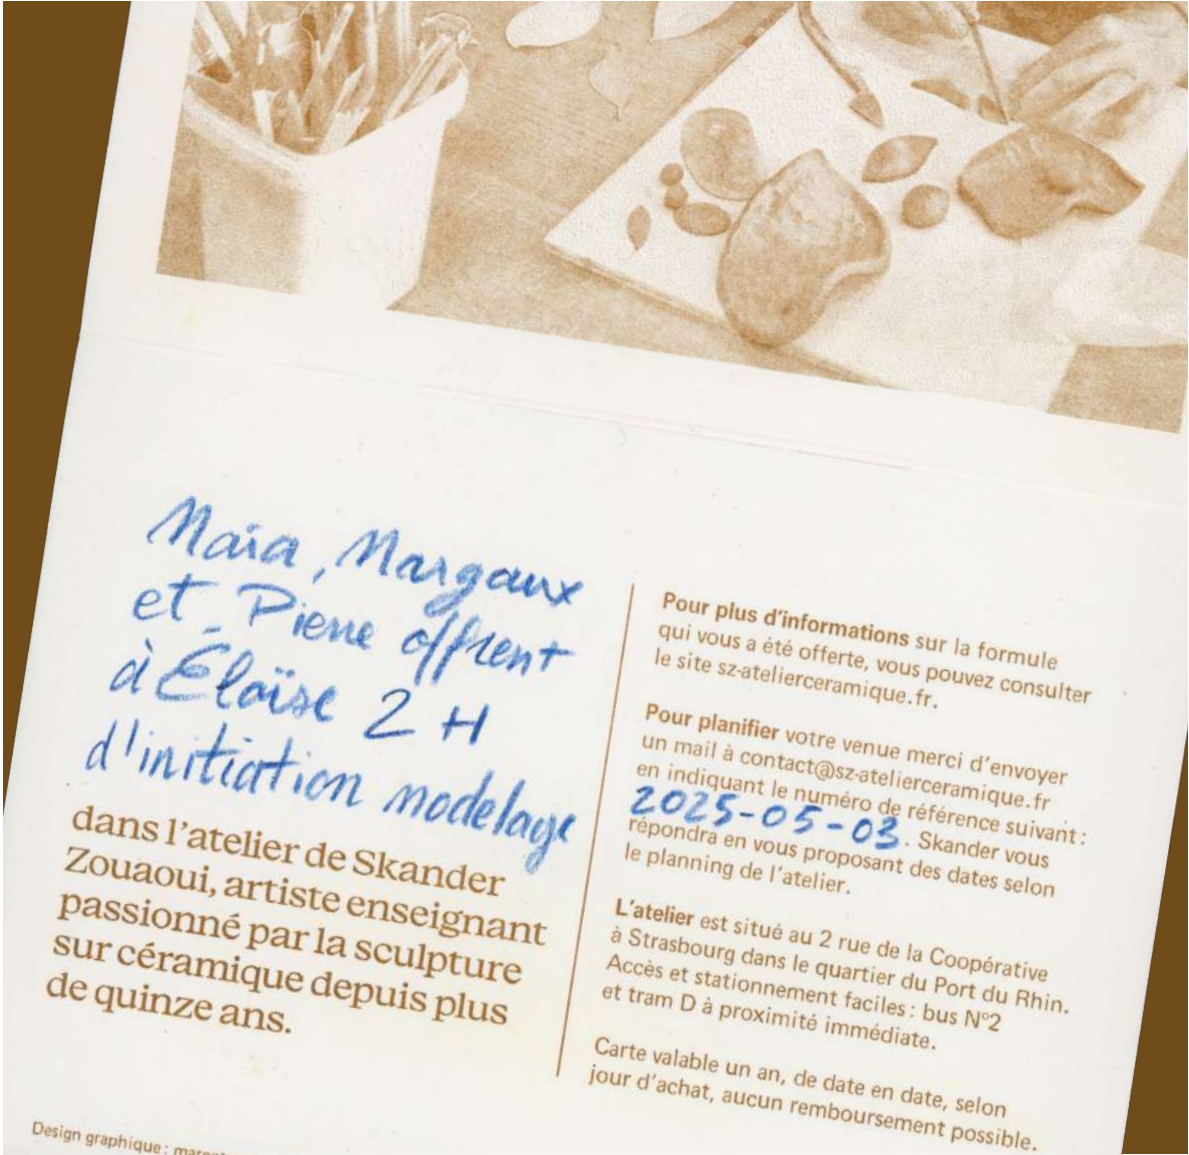 Maïa, Margaux
et Pierre offrent
à Éloïse 2 H
d'initiation modelage
dans l'atelier de Skander
Zouaoui, artiste enseignant
passionné par la sculpture
sur céramique depuis plus
de quinze ans.
Pour plus d'informations sur la formule
qui vous a été offerte, vous pouvez consulter
le site sz-atelierceramique.fr.
Pour planifier votre venue merci d'envoyer
un mail à contact@sz-atelierceramique.fr
en indiquant le numéro de référence suivant :
2025-05-03. Skander vous
répondra en vous proposant des dates selon
le planning de l'atelier.
L'atelier est situé au 2 rue de la Coopérative
à Strasbourg dans le quartier du Port du Rhin.
Accès et stationnement faciles : bus N°2
et tram D à proximité immédiate.
Carte valable un an, de date en date, selon
jour d'achat, aucun remboursement possible.
Design graphique :